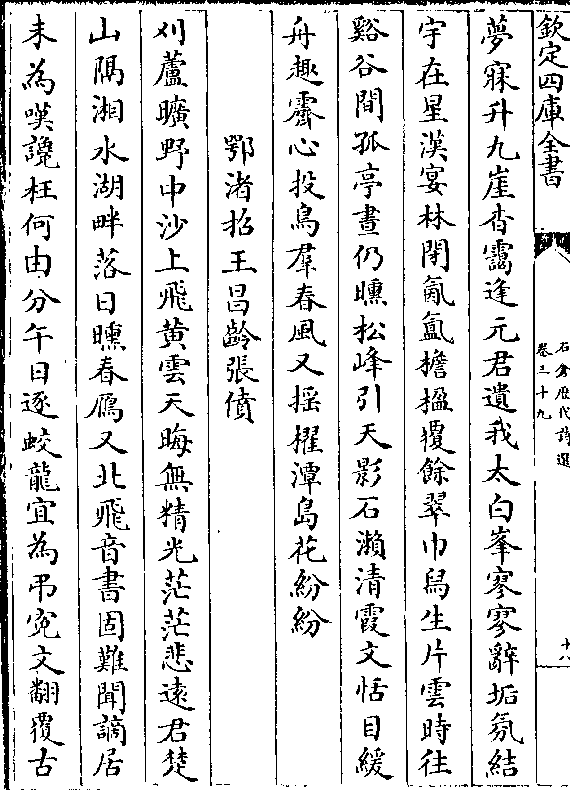 欽定四庫全書
石倉歷代詩選
卷三十九
十八
夢寐升九崖杳靄逢元君遺我太白峯寥寥辭垢氛結
宇在星漢宴林閉氤氳檐楹覆餘翠巾舄生片雲時往
谿谷間孤亭晝仍曛松峰引天影石瀨清霞文恬目緩
舟趣霽心投鳥羣春風又揺櫂潭島花紛紛
鄂渚招王昌齡張僨
刈蘆曠野中沙上飛黄雲天晦無精光茫茫悲遠君楚
山隅湘水湖畔落日曛春鴈又北飛音書固難聞謫居
未為嘆讒枉何由分午日逐蛟龍宜為弔寃文翻覆古